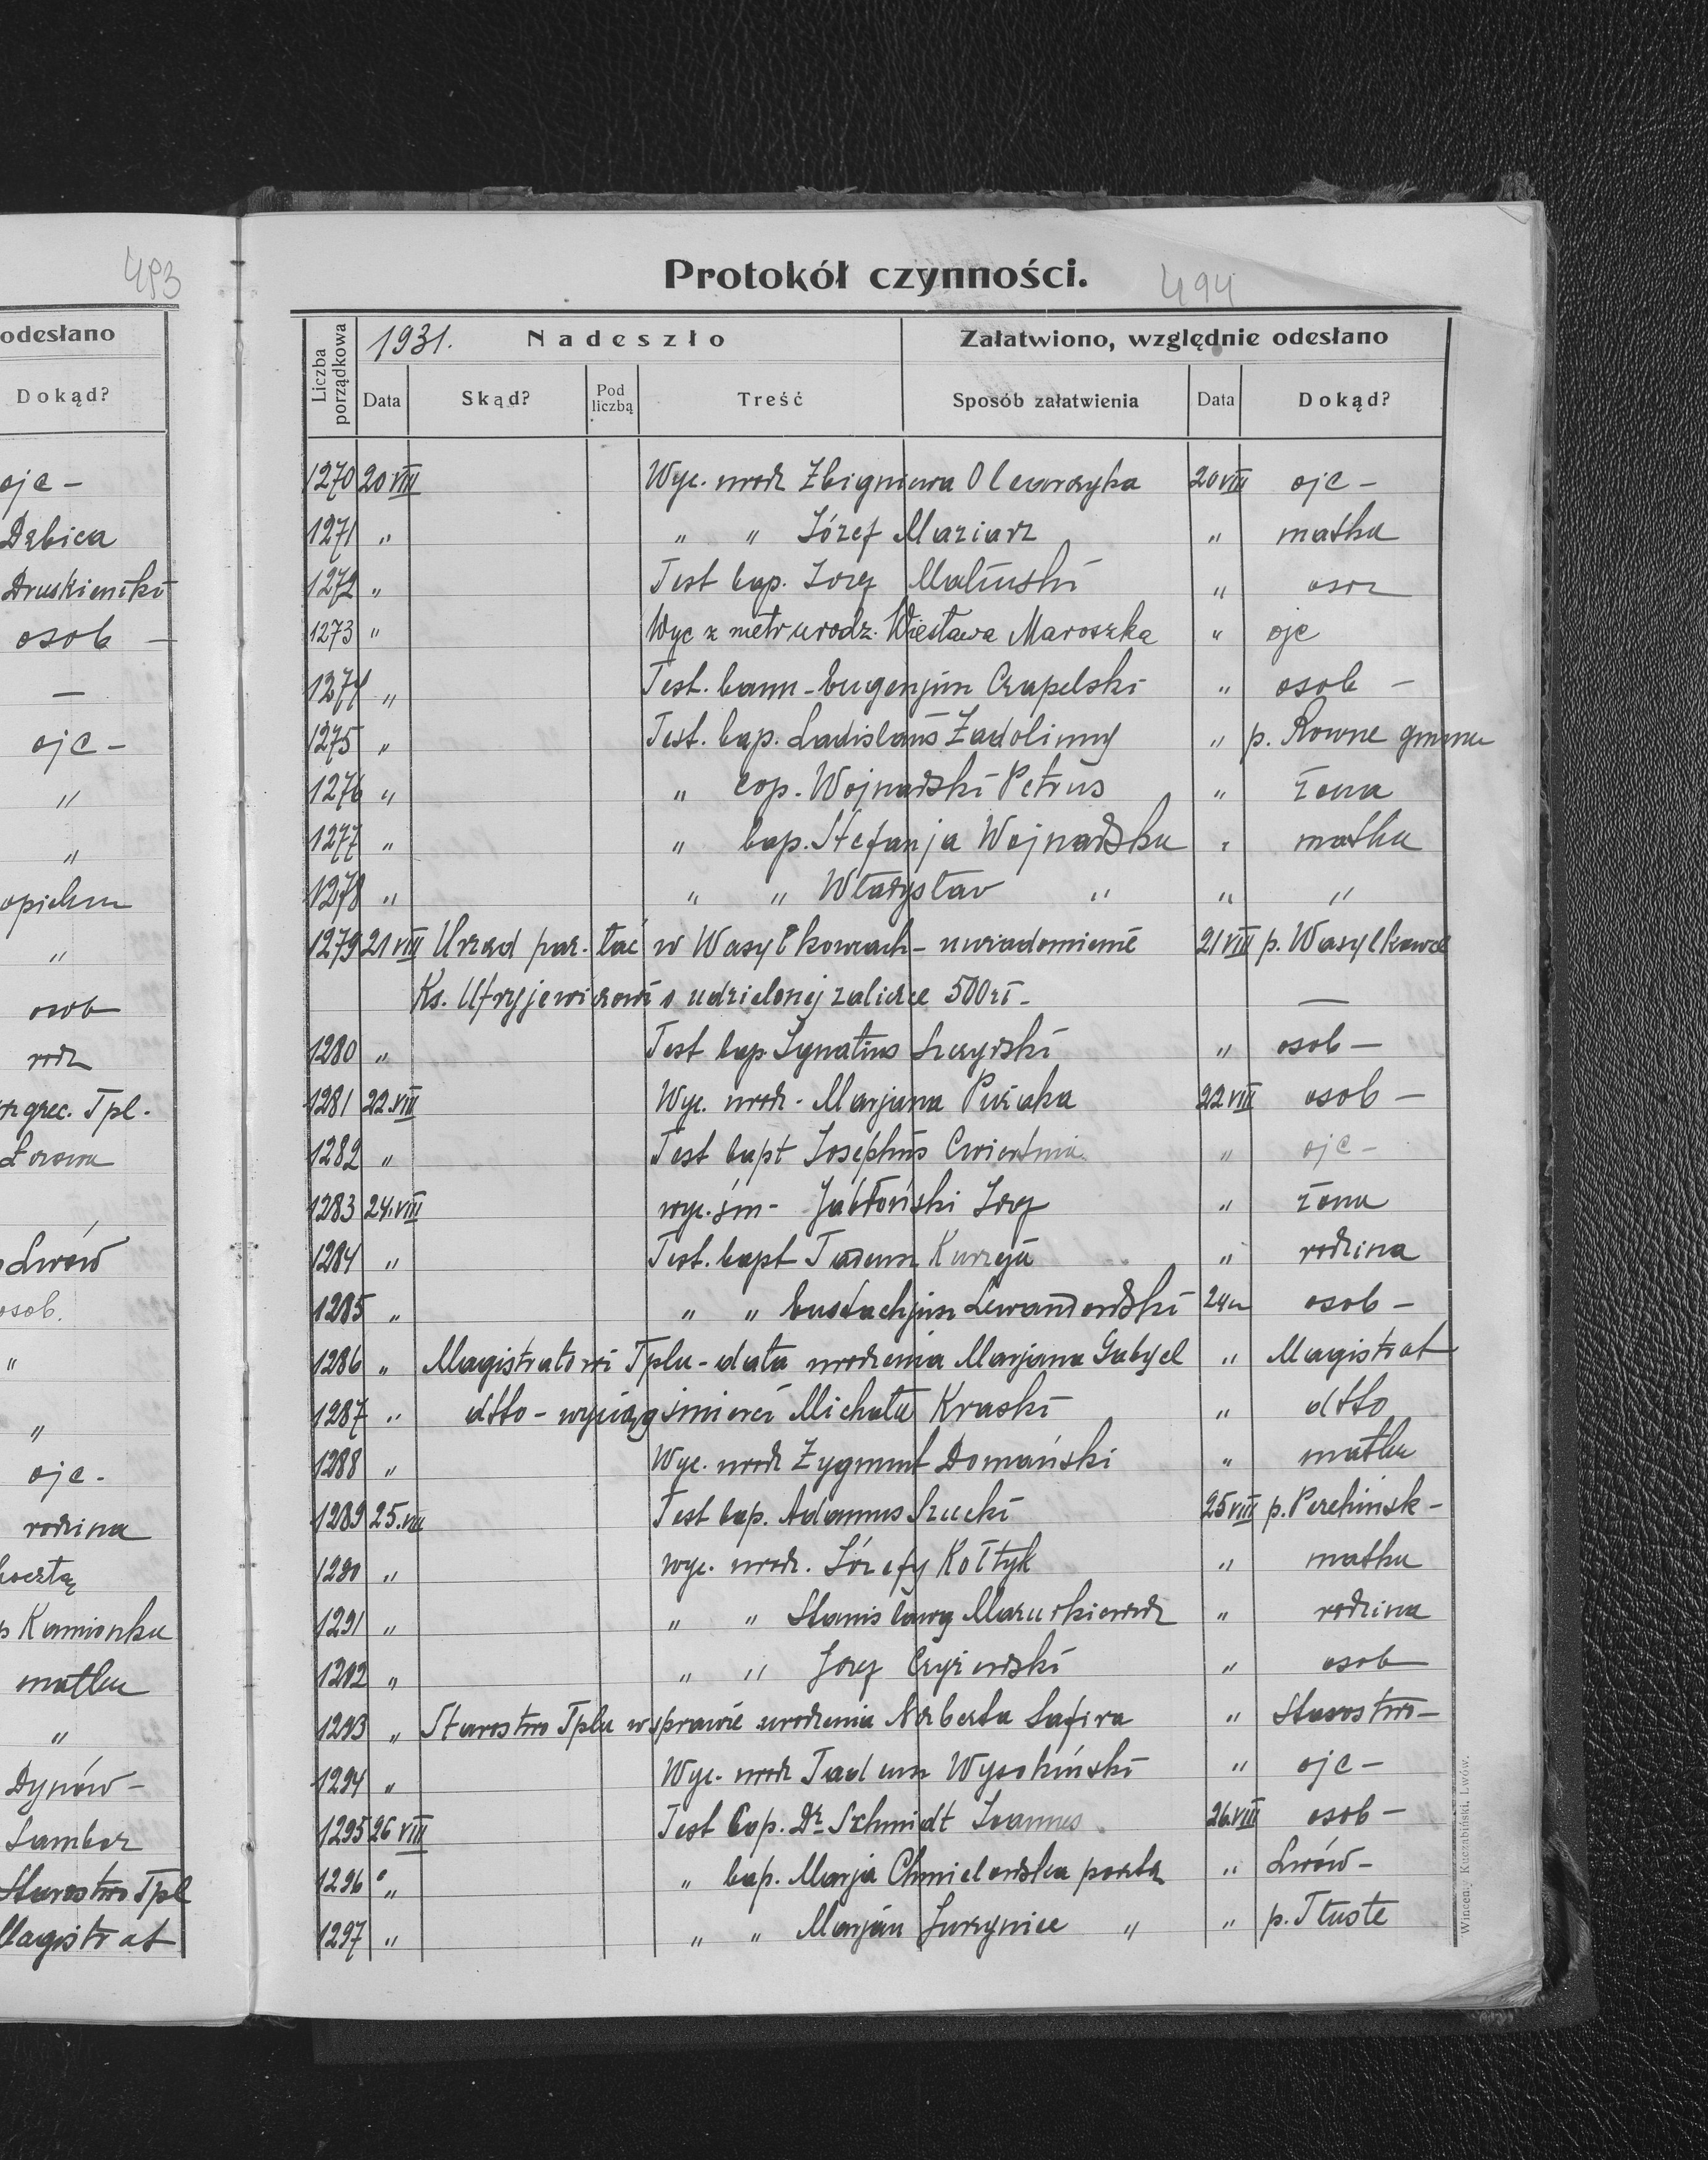 493
odesłano
Dokąd?
ojc -
Dębica
Druskieniki
osob -
-
ojc -
"
"
"
osob
rodz
grec. Tpl.
Lwów
osob.
"
"
ojc -
rodzina
pocztą
Kamionka
matka
"
Dynów -
Sambor
Starostwo Tpl
Magistrat
Protokół czynności.
494
Liczba porządkowa
1931. Nadeszło
Załatwiono, względnie odesłano
Data Skąd? Pod liczbą Treść Sposób załatwienia Data Dokąd?
1270 20 VIII Wyc. urodz Zbigniewa Olearczyka 20 VIII ojc -
1271 " " " Józef Maziarz " matka
1272 " Test bap. Józef Maliński "
1273 " Wyc z metr urodz. Wiesława Maroszka " ojc
1274 " Test. bann - Eugenjusz Czapelski " osob -
1275 " Test. bap. Ladislaus Zadolinny " p. Rowne gmina
1276 " " cop. Wojnarski Petrus " żona
1277 " " bap. Stefanja Wojnarska " matka
1278 " " " Władysław " " "
1279 21 VIII Urząd par. łać w Wasylkowcach - uwiadomienie 21 VIII p. Wasylkowce
Ks. o udzielonej zaliczce 500 zł - -
1280 " Test bap Ignatius " osob -
1281 22.VIII Wyc. urodz - Marjana Puzaka 22 VIII osob -
1282 " Test bapt Josephus Cwiertnia " ojc -
1283 24.VIII wyc. śm - Jabłoński Józef " żona
1284 " Test. bapt Tadeusz Kurzeja " rodzina
1285 " " " Eustachjusz Lewandowski 24 " osob -
1286 " Magistratowi Tplu - data urodzenia Marjana Gabyel " Magistrat
1287 " dtto - wyciąg śmierci Michała Kraski " dtto
1288 " Wyc. urodz Zygmunt Domański " matka
1289 25.VIII Test bap. Adamus Szucki 25 VIII p. Perehinsk -
1290 " wyc. urodz. Józefy Kołtyk " matka
1291 " " " Stanisławy Mazurkiewicz " rodzina
1292 " " " Józef Czyżewski " osob
1293 " Starostwo Tplu w sprawie urodzenia Norberta Safira " Starostwo -
1294 " Wyc. urodz Tadeusz Wysokiński " ojc -
1295 26 VIII Test bap. Dr Schmidt Joannes 26.VIII osob -
1296 " " bap. Marja Chmielowska poczta " Lwów -
1297 " " " Marjan " " p. Tłuste
Wincenty Kuczabiński, Lwów.